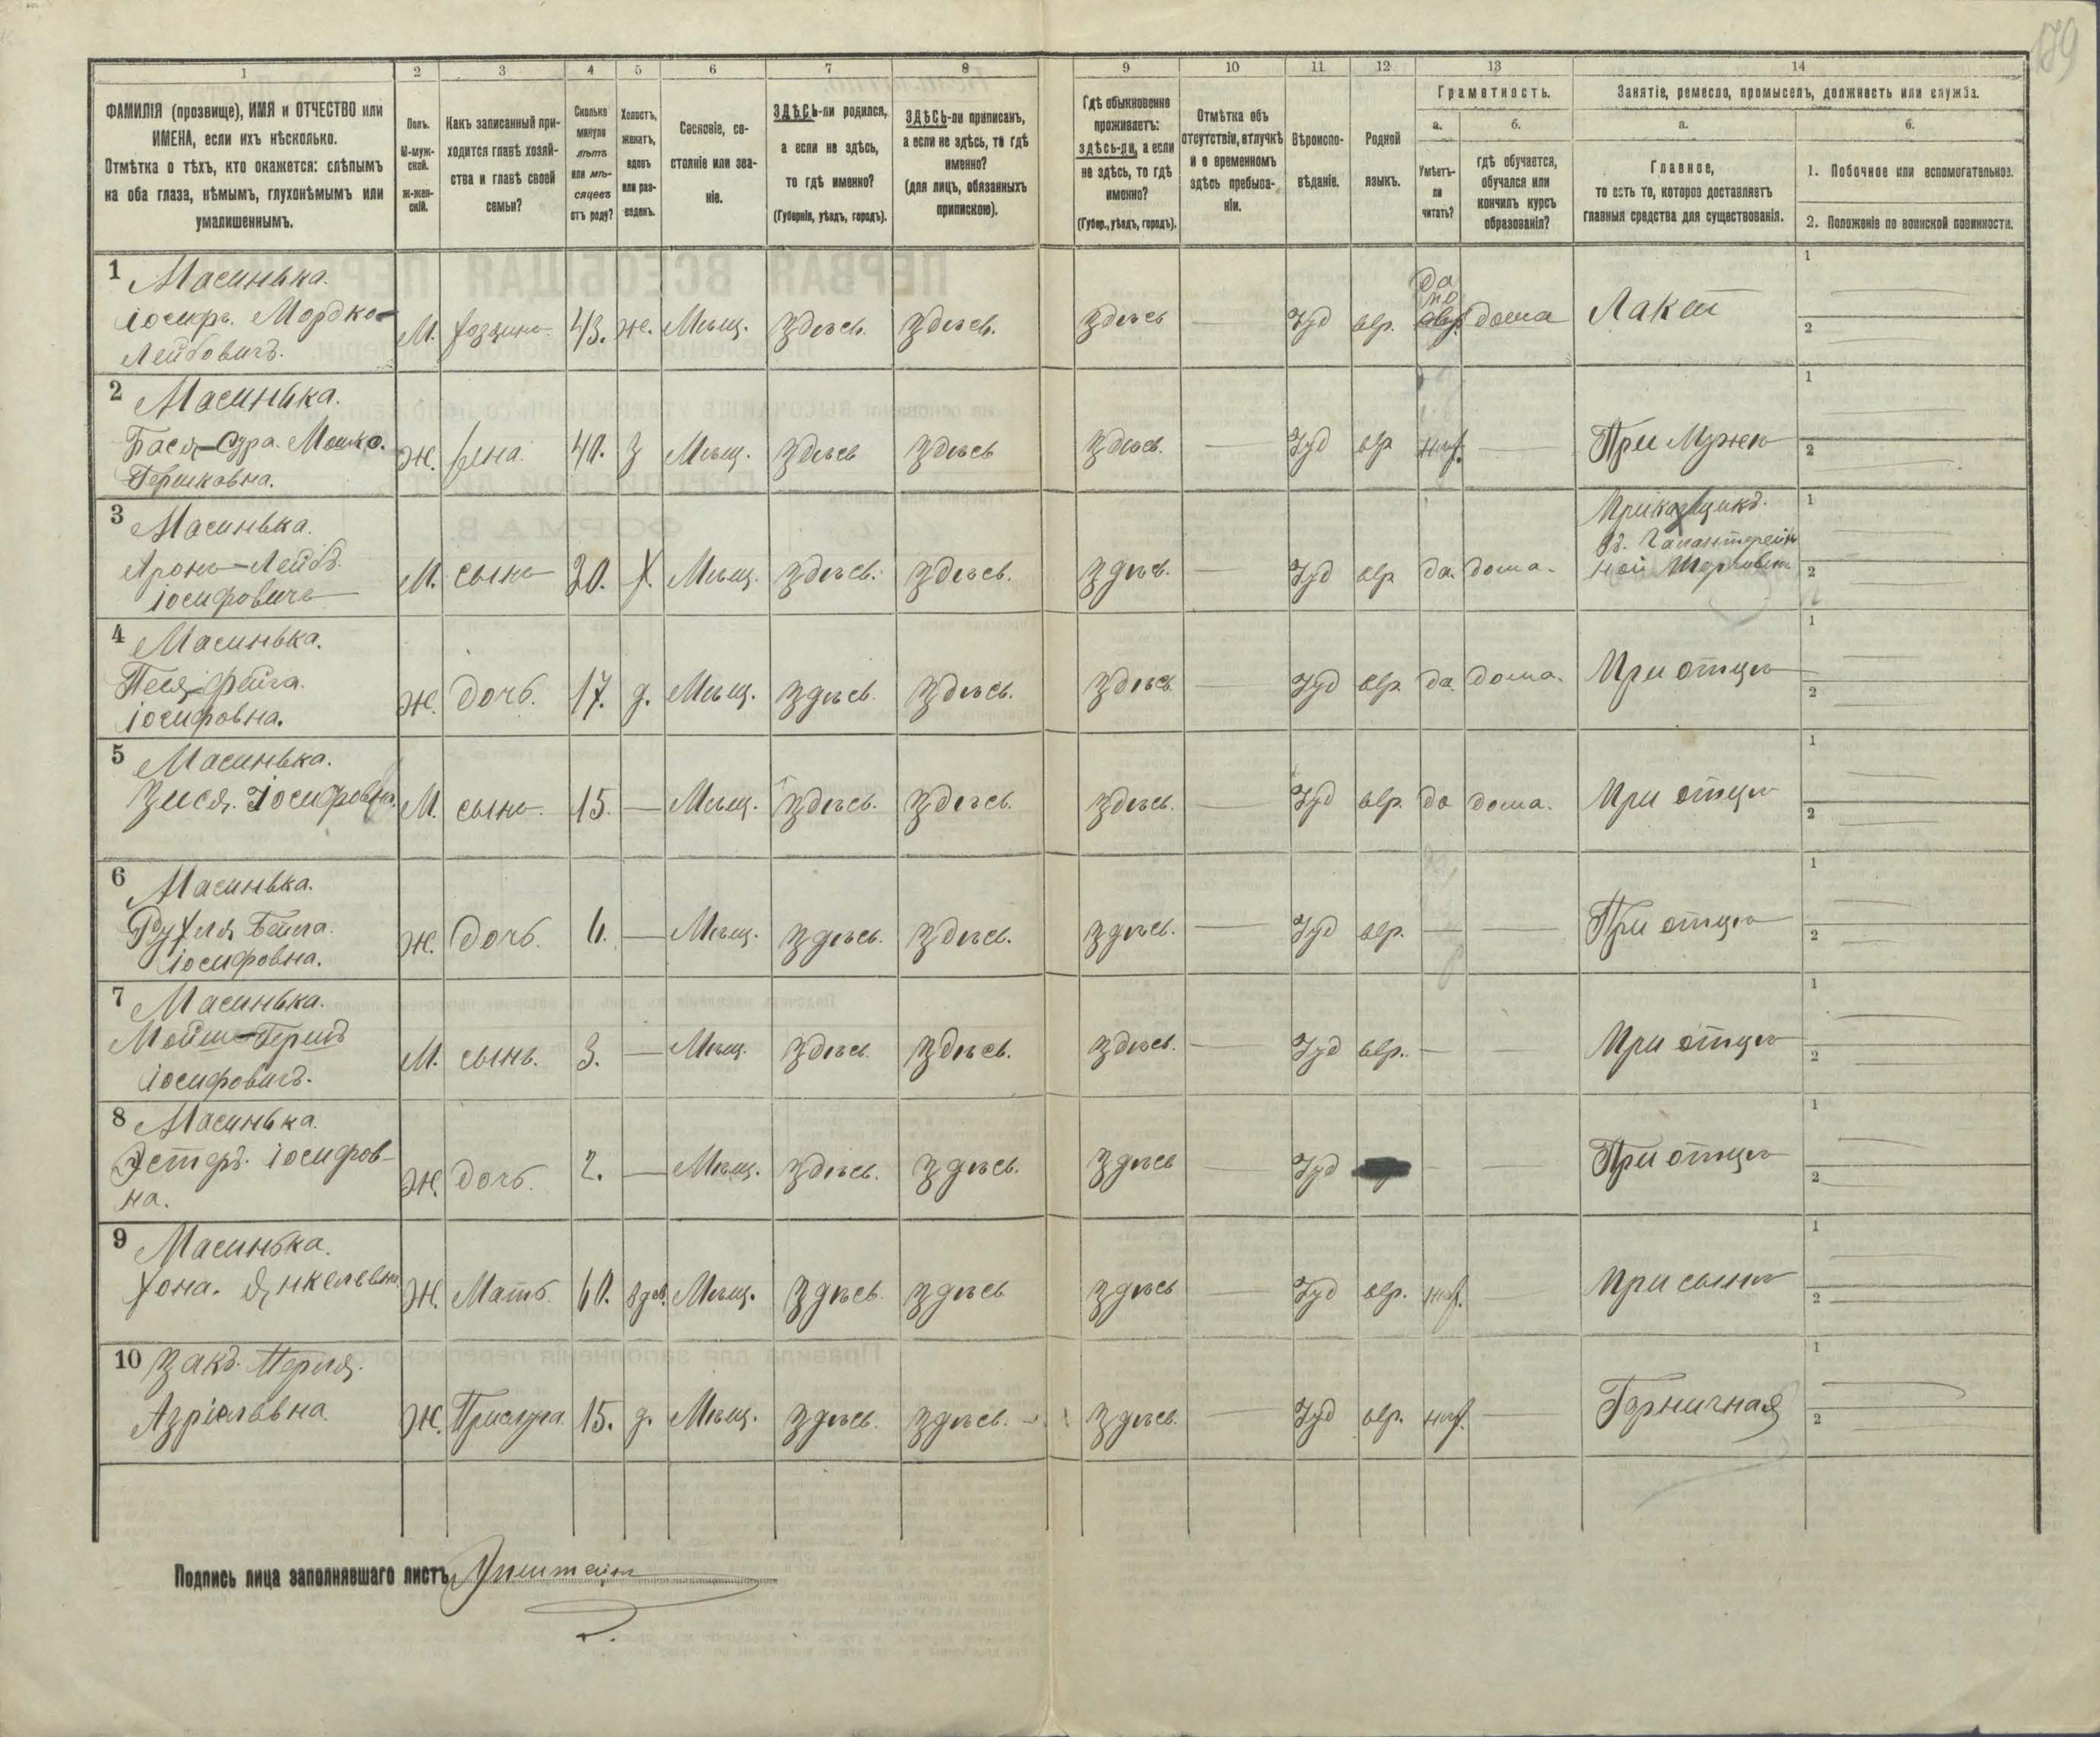 179
1
2
3
4
5
6
7
8
9
10
11
12
13
14
ФАМИЛІЯ (прозвище), ИМЯ и ОТЧЕСТВО или
ИМЕНА, если ихъ нѣсколько.
Отмѣтка о тѣхъ, кто окажется: слѣпымъ
на оба глаза, нѣмымъ, глухонѣмымъ или
умалишеннымъ.
Полъ.
М-муж-
ской.
ж-жен-
скій.
Какъ записанный при-
ходится главѣ хозяй-
ства и главѣ своей
семьи?
Сколько
минуло
лѣтъ
или мѣ-
сяцевъ
отъ роду?
Холостъ,
женатъ,
вдовъ
или раз-
веденъ.
Сословіе, со-
стояніе или зва-
ніе.
ЗДѢСЬ-ли родился,
а если не здѣсь,
то гдѣ именно?
(Губернія, уѣздъ, городъ).
ЗДѢСЬ-ли приписанъ,
а если не здѣсь, то гдѣ
именно?
(для лицъ, обязанныхъ
припискою).
Гдѣ обыкновенно
проживаетъ:
здѣсь-ли, а если
не здѣсь, то гдѣ
именно?
(Губер., уѣздъ, городъ).
Отмѣтка объ
отсутствіи, отлучкѣ
и о временномъ
здѣсь пребыва-
ніи.
Вѣроиспо-
вѣданіе.
Родной
языкъ.
Грамотность.
а.
Умѣетъ-
ли
читать?
б.
гдѣ обучается,
обучался или
кончилъ курсъ
образованія?
Занятіе, ремесло, промыселъ, должность или служба.
а.
Главное,
то есть то, которое доставляетъ
главныя средства для существованія.
б.
1. Побочное или вспомогательное.
2. Положеніе по воинской повинности.
1 Масинька.
Іосифъ. Мордко-
Лейбовичъ.
М. хозяинъ 43. ж. Мѣщ. Здѣсь. Здѣсь. Здѣсь — Іуд евр. да по дома
1
2
2 Масинька.
Бася-Сура. Мошко-
Гершковна.
Ж. жена 40. з Мѣщ. Здѣсь Здѣсь Здѣсь. — Іуд евр — При Мужѣ
1
2
3 Масинька.
Аронъ-Лейбъ.
Іосифовичъ
М. сынъ 20. х. Мѣщ. Здѣсь. Здѣсь. Здѣсь. — Іуд евр да. дома.
Приказщикъ.
въ. Галантерей
ной Торговлѣ
1
2
4 Масинька.
Песя-Фейга.
Іосифовна.
Ж. дочь. 17. д. Мѣщ. Здѣсь Здѣсь. Здѣсь. — Іуд евр. да. дома. При отцѣ
1
2
5 Масинька.
Зися. Іосифов
М. сынъ. 15. — Мѣщ. Здѣсь. Здѣсь. Здѣсь. — Іуд евр. да дома. При отцѣ
1
2
6 Масинька.
Рухля Бейла.
Іосифовна.
Ж. дочь. 6. — Мѣщ. Здѣсь. Здѣсь. Здѣсь. — Іуд евр. — — При отцѣ
1
2
7 Масинька.
Мойше-Гершъ
Іосифовичъ.
М. сынъ. 3. — Мѣщ. Здѣсь. Здѣсь. Здѣсь. — Іуд евр. — — При отцѣ
1
2
8 Масинька.
Эстеръ. Іосифов-
на.
Ж. дочь. 2. — Мѣщ. Здѣсь. Здѣсь. Здѣсь — Іуд — — При отцѣ
1
2
9 Масинька.
Хона. Янкелевна
Ж. Мать 60. вдов. Мѣщ. Здѣсь. Здѣсь Здѣсь — Іуд евр. — При сынѣ
1
2
10 Закъ. Перля.
Азріельвна.
Ж. Прислуга 15. д. Мѣщ. Здѣсь. Здѣсь. Здѣсь. — Іуд евр. — Горничная
1
2
Подпись лица заполнявшаго листъ